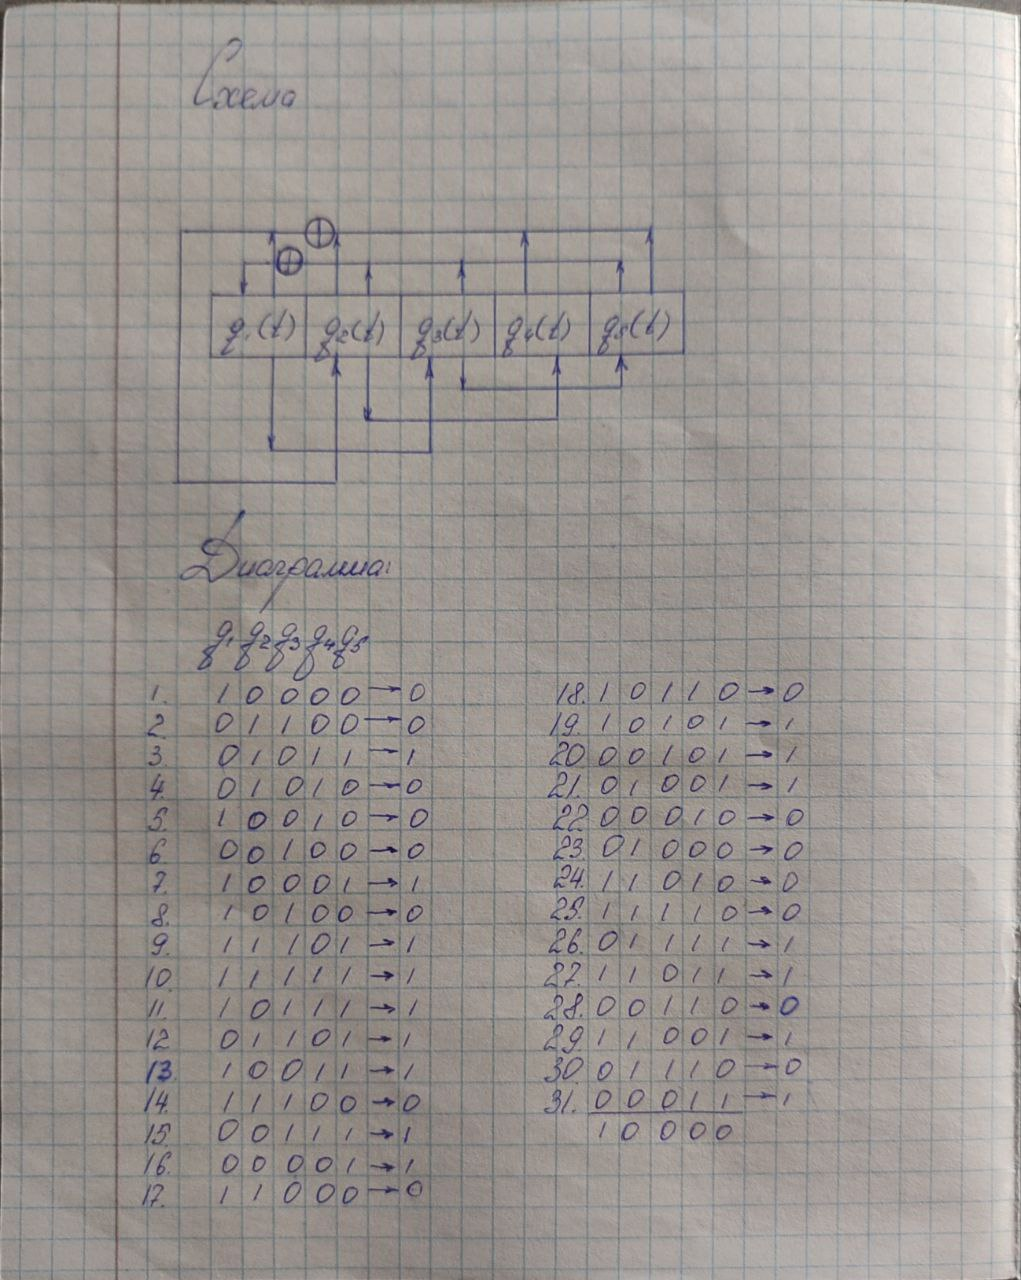 Схема
q₁(t) q₂(t) q₃(t) q₄(t) q₅(t)
Диаграмма:
q₁ q₂ q₃ q₄ q₅
1. 1 0 0 0 0 → 0
2 0 1 1 0 0 → 0
3. 0 1 0 1 1 → 1
4. 0 1 0 1 0 → 0
5. 1 0 0 1 0 → 0
6 0 0 1 0 0 → 0
7. 1 0 0 0 1 → 1
8. 1 0 1 0 0 → 0
9. 1 1 1 0 1 → 1
10. 1 1 1 1 1 → 1
11. 1 0 1 1 1 → 1
12 0 1 1 0 1 → 1
13. 1 0 0 1 1 → 1
14. 1 1 1 0 0 → 0
15. 0 0 1 1 1 → 1
16. 0 0 0 0 1 → 1
17. 1 1 0 0 0 → 0
18. 1 0 1 1 0 → 0
19. 1 0 1 0 1 → 1
20 0 0 1 0 1 → 1
21. 0 1 0 0 1 → 1
22 0 0 0 1 0 → 0
23. 0 1 0 0 0 → 0
24. 1 1 0 1 0 → 0
25. 1 1 1 1 0 → 0
26. 0 1 1 1 1 → 1
27. 1 1 0 1 1 → 1
28. 0 0 1 1 0 → 0
29 1 1 0 0 1 → 1
30. 0 1 1 1 0 → 0
31. 0 0 0 1 1 → 1
1 0 0 0 0